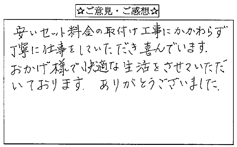 ☆ご意見・ご感想☆
安いセット料金の取付け工事にかかわらず
丁寧に仕事をしていただき喜んでいます.
おかげ様で快適な生活をさせていただ
いております. ありがとうございました.